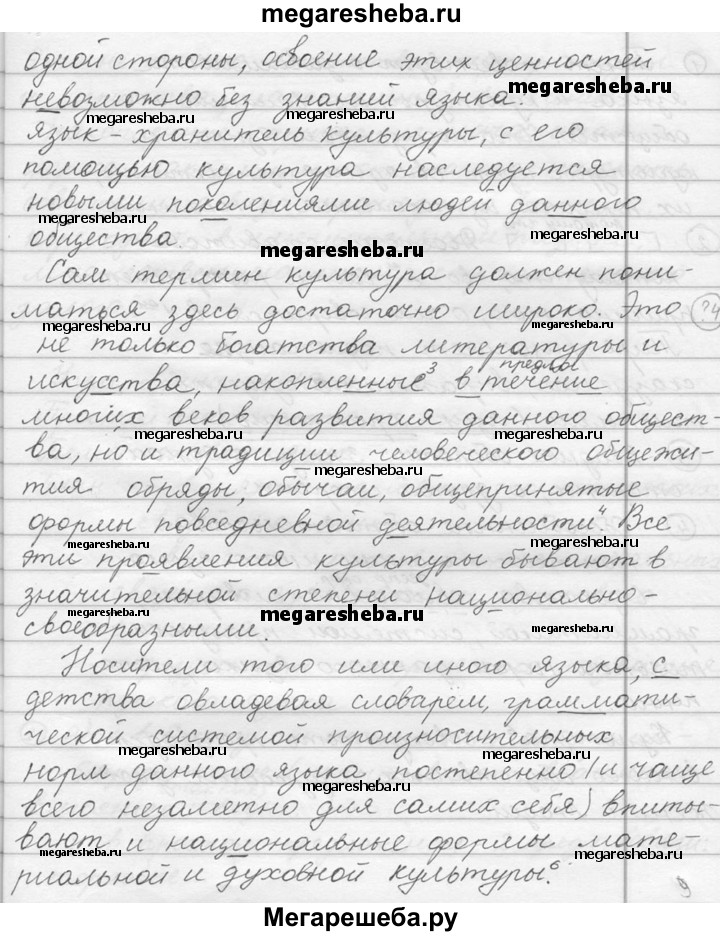 megaresheba.ru
одной стороны, освоение этих ценностей
megaresheba.ru
невозможно без знаний языка.
megaresheba.ru
язык - хранитель культуры, с его
помощью культура наследуется
новыми поколениями людей данного
megaresheba.ru megaresheba.ru
общества.
megaresheba.ru
Сам термин культура должен пони-
маться здесь достаточно широко. Это
megaresheba.ru megaresheba.ru
не только богатства литературы и
предлог
искусства, накопленные³ в течение
megaresheba.ru
многих веков развития данного общест-
megaresheba.ru megaresheba.ru
ва, но и традиции человеческого общежи-
megaresheba.ru
тия обряды, обычаи, общепринятые
формы повседневной деятельности". Все
megaresheba.ru megaresheba.ru
эти проявления культуры бывают в
значительной степени национально-
megaresheba.ru megaresheba.ru megaresheba.ru
своеобразными.
Носители того или иного языка, с
megaresheba.ru megaresheba.ru
детства овладевая словарём, граммати-
ческой системой произносительных
megaresheba.ru megaresheba.ru
норм данного языка, постепенно (и чаще
всего незаметно для самих себя) впиты-
megaresheba.ru
вают и национальные формы мате-
megaresheba.ru megaresheba.ru
риальной и духовной культуры.⁶
9
Мегарешеба.ру